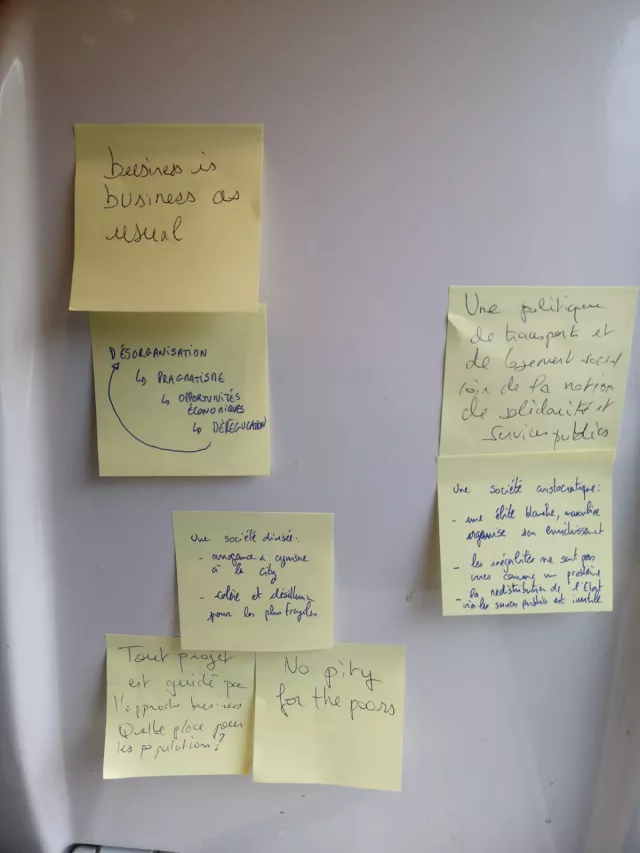 business is
business as
usual
DÉSORGANISATION
↳ PRAGMATISME
↳ OPPORTUNITÉS
ÉCONOMIQUES
↳ DÉRÉGULATION
Une politique
de transports et
de logement social
loin de la notion
de solidarité et
services publics
Une société aristocratique :
- une élite blanche, masculine
organise son enrichissement
- les inégalités ne sont pas
vues comme un problème
- la redistribution de l'Etat
via les services publics est inutile
Une société divisée :
- arrogance & cynisme
à la City
- colère et désillusion
pour les plus fragiles
Tout projet
est guidé par
l'approche business
Quelle place pour
les populations ?
No pity
for the poors